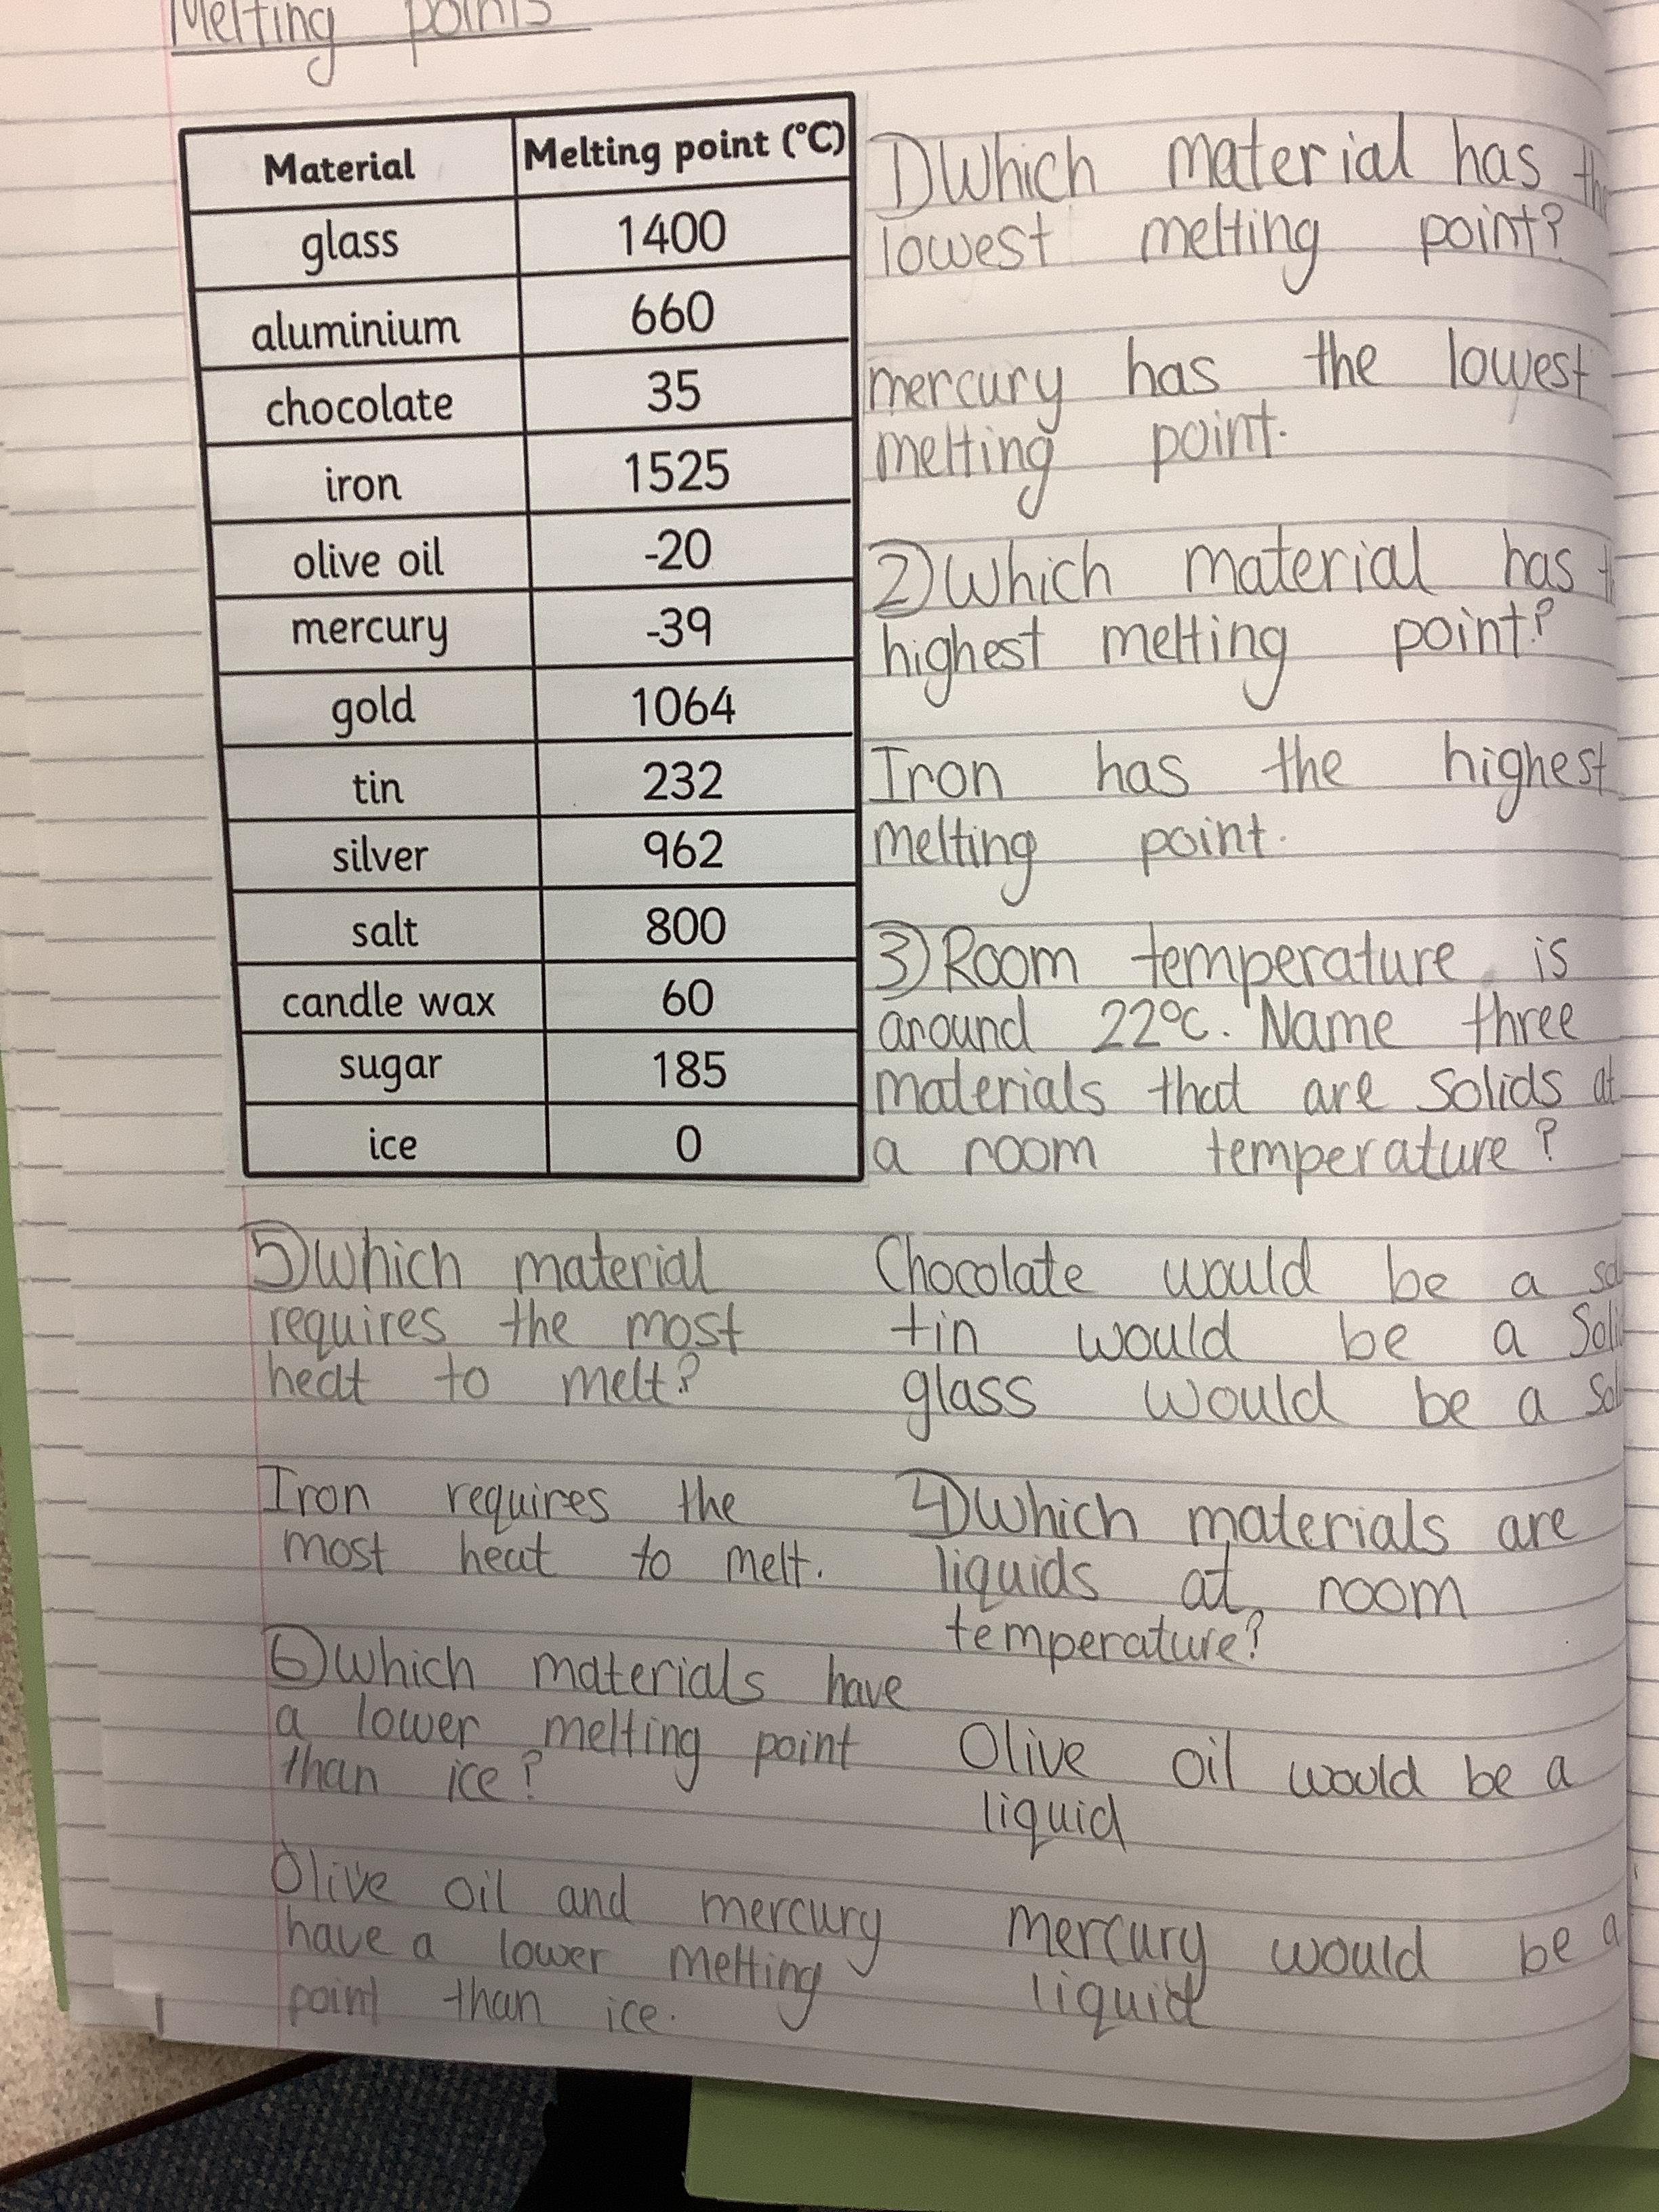 Melting points
Material Melting point (°C)
glass 1400
aluminium 660
chocolate 35
iron 1525
olive oil -20
mercury -39
gold 1064
tin 232
silver 962
salt 800
candle wax 60
sugar 185
ice 0
1) Which material has
lowest melting point?
mercury has the lowest
melting point.
2) Which material has
highest melting point?
Iron has the highest
melting point.
3) Room temperature is
around 22°C. Name three
materials that are solids at
a room temperature?
Chocolate would be a
tin would be a
glass would be a
4) Which materials are
liquids at room
temperature?
Olive oil would be a
liquid
mercury would be a
liquid
5) Which material
requires the most
heat to melt?
Iron requires the
most heat to melt.
6) Which materials have
a lower melting point
than ice?
Olive oil and mercury
have a lower melting
point than ice.